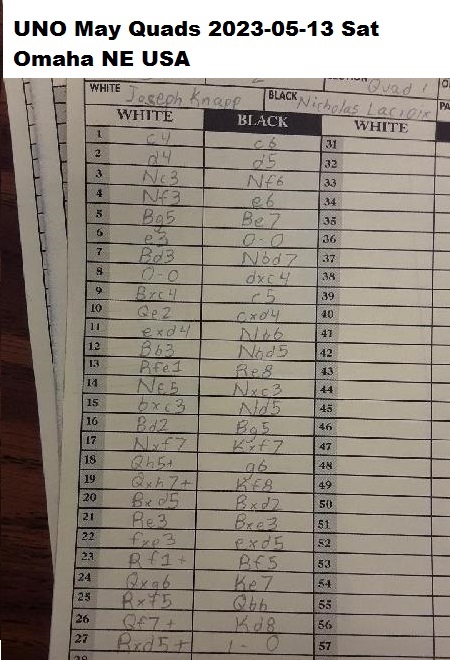 UNO May Quads 2023-05-13 Sat
Omaha NE USA
Quad 1
WHITE Joseph Knapp BLACK Nicholas Lacroix
WHITE BLACK WHITE
1 c4 c6 31
2 d4 d5 32
3 Nc3 Nf6 33
4 Nf3 e6 34
5 Bg5 Be7 35
6 e3 0-0 36
7 Bd3 Nbd7 37
8 0-0 dxc4 38
9 Bxc4 c5 39
10 Qe2 cxd4 40
11 exd4 Nb6 41
12 Bb3 Nbd5 42
13 Rfe1 Re8 43
14 Ne5 Nxc3 44
15 bxc3 Nd5 45
16 Bd2 Bg5 46
17 Nxf7 Kxf7 47
18 Qh5+ g6 48
19 Qxh7+ Kf8 49
20 Bxd5 Bxd2 50
21 Re3 Bxe3 51
22 fxe3 exd5 52
23 Rf1+ Bf5 53
24 Qxg6 Ke7 54
25 Rxf5 Qb6 55
26 Qf7+ Kd8 56
27 Rxd5+ 1-0 57